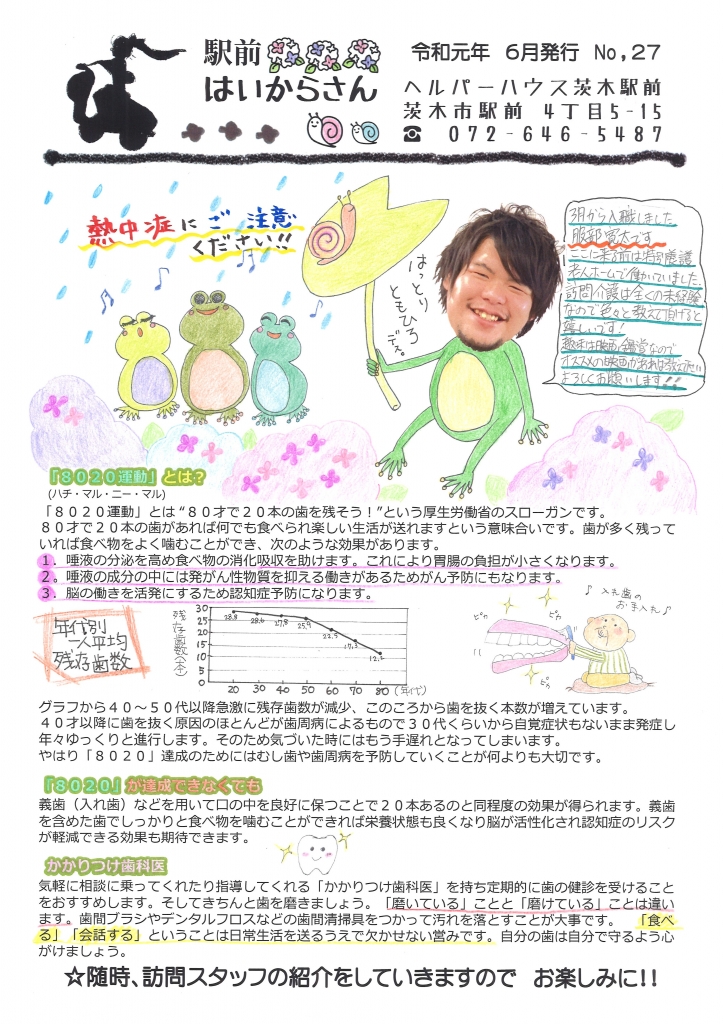 駅前
はいからさん
令和元年 6月発行 No,27
ヘルパーハウス茨木駅前
茨木市駅前 4丁目5-15
☎ 072-646-5487
熱中症にご注意
ください!!
はっとり
ともひろ
デス。
3月から入職しました
服部寛太です
ここに来る前は特別養護
老人ホームで働いていました。
訪問介護は全くの未経験
なので色々と教えて頂けると
嬉しいです!
趣味は映画鑑賞なので
オススメの映画があれば教えて下さい
よろしくお願いします!!
「8020運動」とは?
(ハチ・マル・ニー・マル)
「8020運動」とは“80才で20本の歯を残そう!”という厚生労働省のスローガンです。
80才で20本の歯があれば何でも食べられ楽しい生活が送れますという意味合いです。歯が多く残って
いれば食べ物をよく噛むことができ、次のような効果があります。
1．唾液の分泌を高め食べ物の消化吸収を助けます。これにより胃腸の負担が小さくなります。
2。唾液の成分の中には発がん性物質を抑える働きがあるためがん予防にもなります。
3．脳の働きを活発にするため認知症予防になります。
年代別
一人平均
残存歯数
残存歯数(本)
30
25
20
15
10
5
0
28.8 28.6 27.8 25.9 22.5 17.3 12.2
20 30 40 50 60 70 80 (年代)
♪ 入れ歯の
お手入れ♪
ピカ
ピカ
ピカ
グラフから40～50代以降急激に残存歯数が減少、このころから歯を抜く本数が増えています。
40才以降に歯を抜く原因のほとんどが歯周病によるもので30代くらいから自覚症状もないまま発症し
年々ゆっくりと進行します。そのため気づいた時にはもう手遅れとなってしまいます。
やはり「8020」達成のためにはむし歯や歯周病を予防していくことが何よりも大切です。
「8020」が達成できなくても
義歯(入れ歯)などを用いて口の中を良好に保つことで20本あるのと同程度の効果が得られます。義歯
を含めた歯でしっかりと食べ物を噛むことができれば栄養状態も良くなり脳が活性化され認知症のリスク
が軽減できる効果も期待できます。
かかりつけ歯科医
気軽に相談に乗ってくれたり指導してくれる「かかりつけ歯科医」を持ち定期的に歯の健診を受けること
をおすすめします。そしてきちんと歯を磨きましょう。「磨いている」ことと「磨けている」ことは違い
ます。歯間ブラシやデンタルフロスなどの歯間清掃具をつかって汚れを落とすことが大事です。 「食べ
る」「会話する」ということは日常生活を送るうえで欠かせない営みです。自分の歯は自分で守るよう心
がけましょう。
☆随時、訪問スタッフの紹介をしていきますので お楽しみに!!